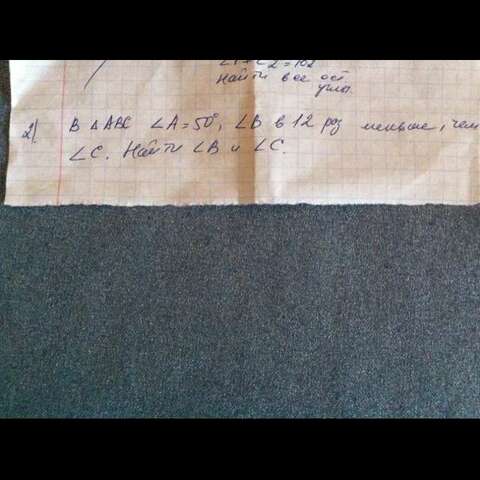 ∠1+∠2=102
Найти все ост
угла.
2). В △ABC ∠A=50°, ∠B в 12 раз меньше, чем
∠C. Найти ∠B и ∠C.